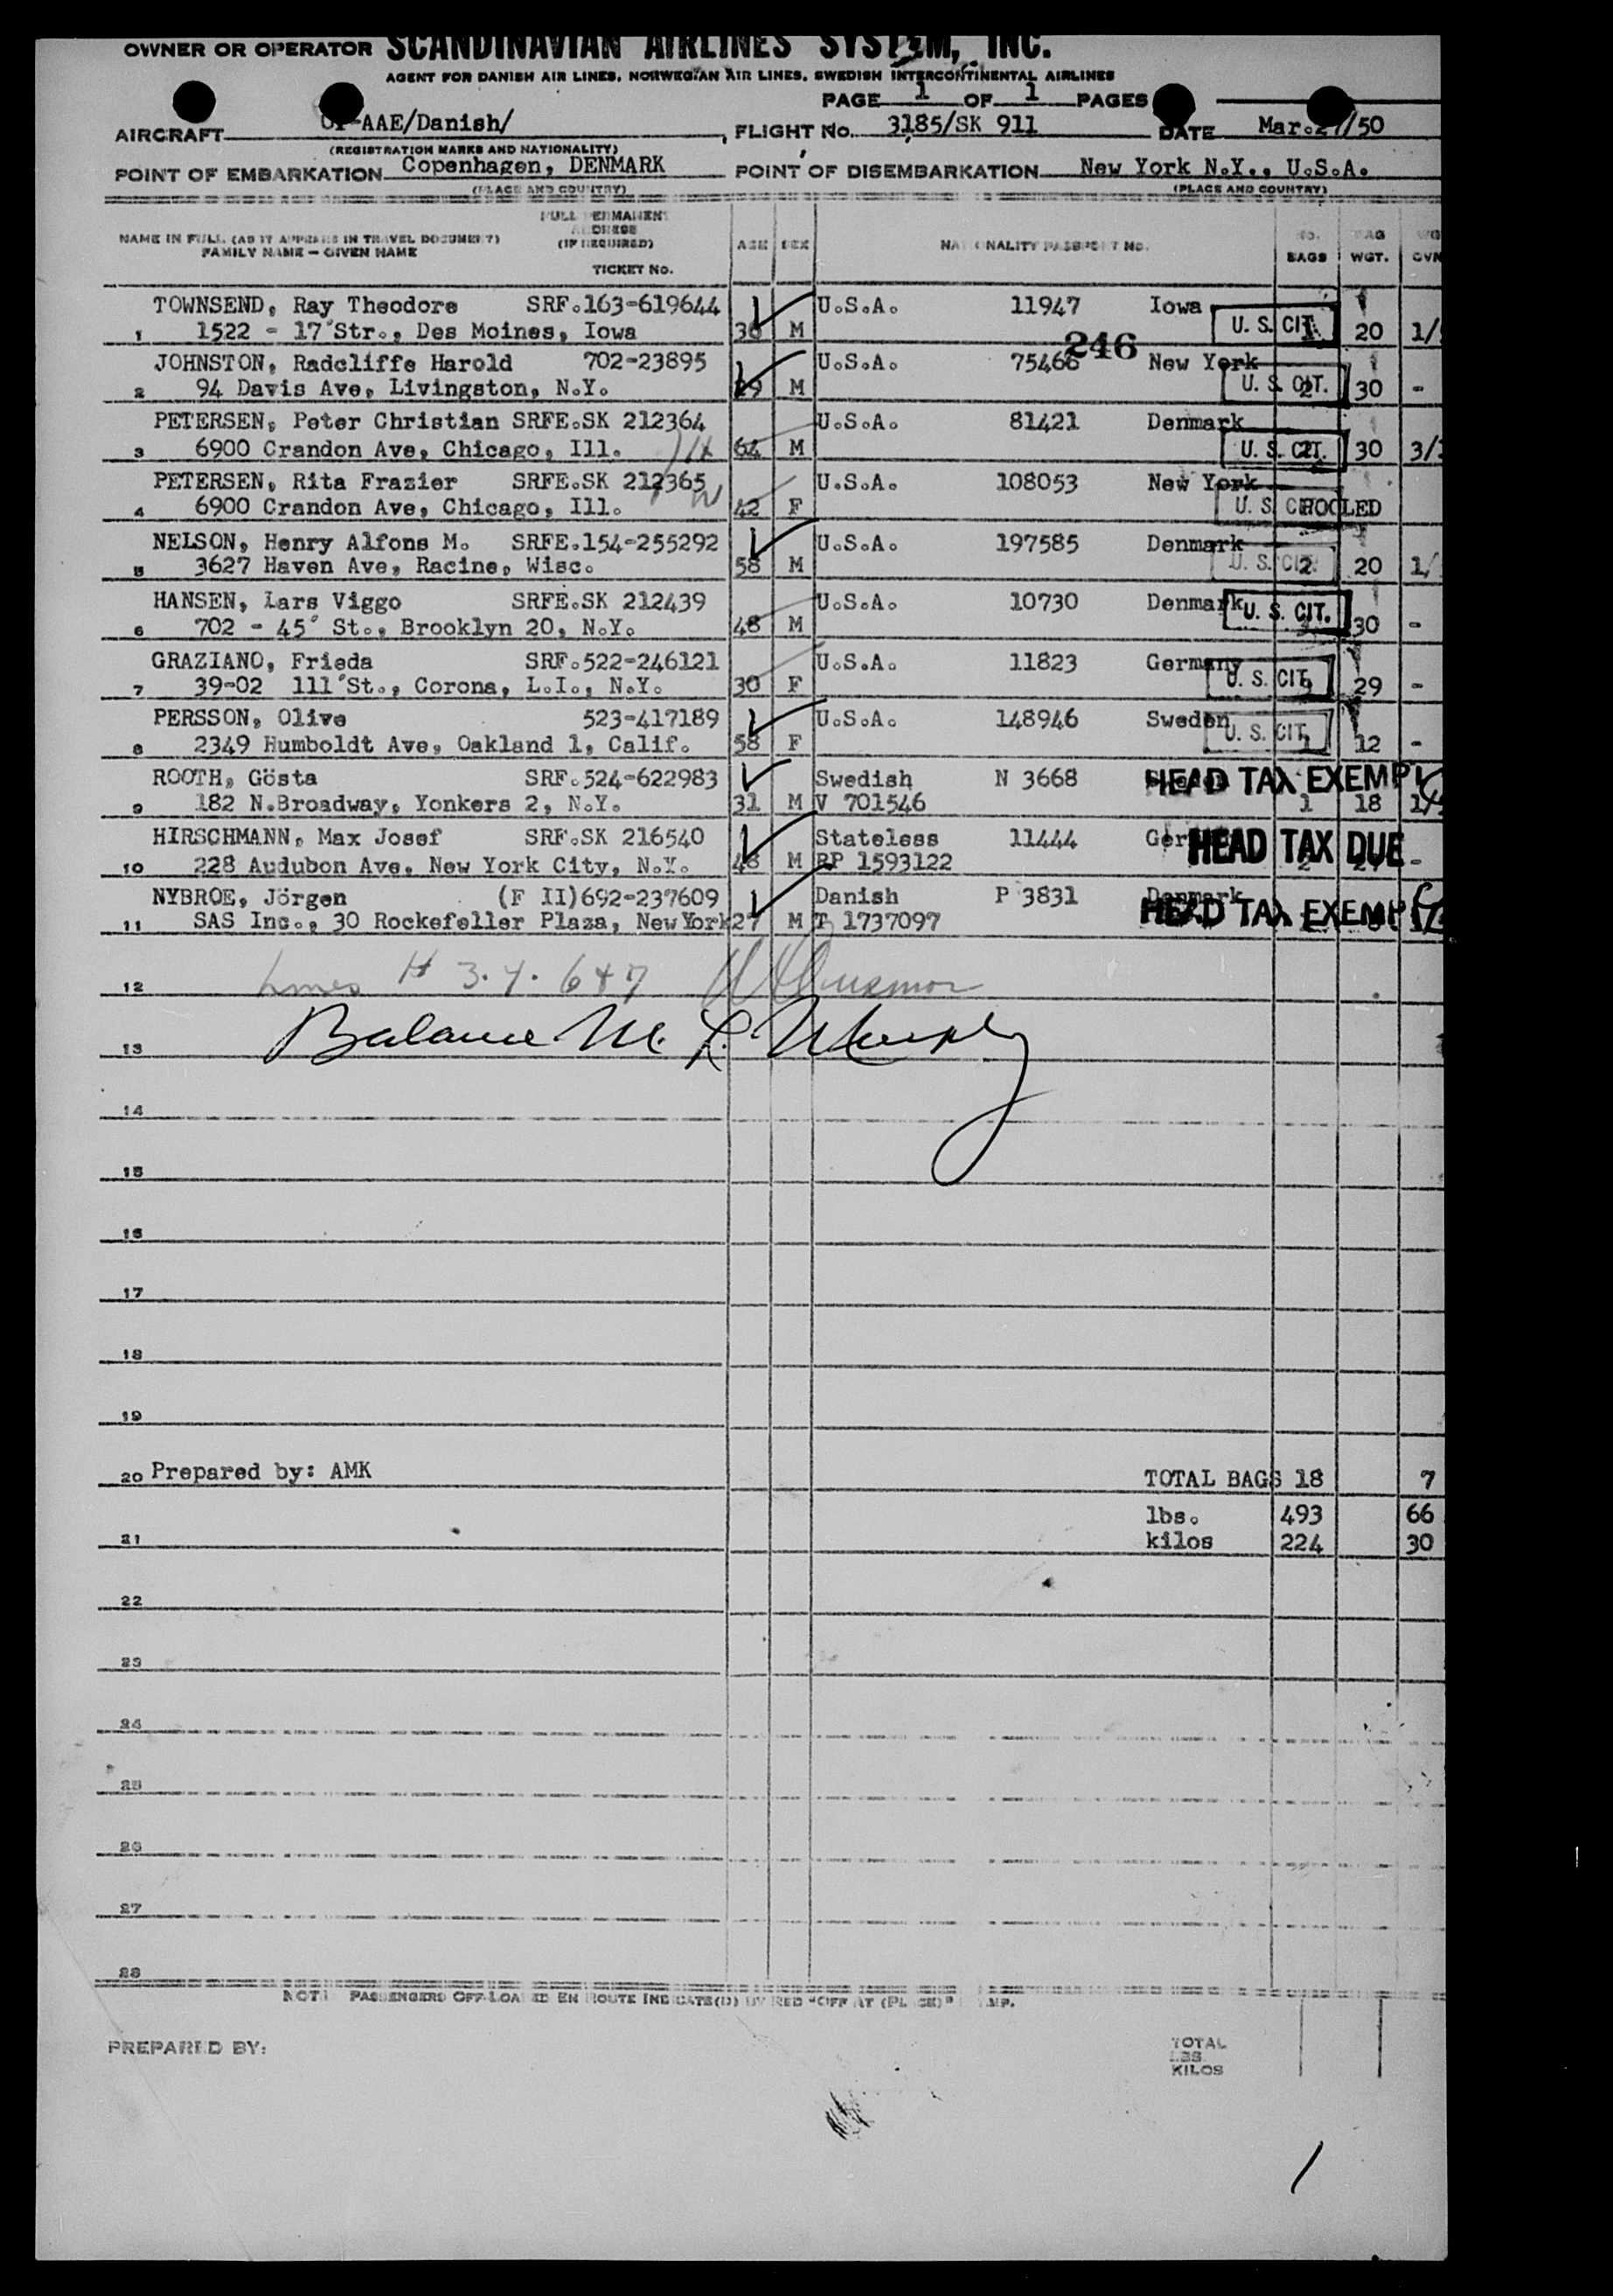 OWNER OR OPERATOR SCANDINAVIAN AIRLINES SYSTEM, INC.
AGENT FOR DANISH AIR LINES, NORWEGIAN AIR LINES, SWEDISH INTERCONTINENTAL AIRLINES
PAGE 1 OF 1 PAGES
AIRCRAFT -AAE/Danish/ , FLIGHT No. 3185/SK 911 DATE Mar. /50
(REGISTRATION MARKS AND NATIONALITY)
POINT OF EMBARKATION Copenhagen, DENMARK POINT OF DISEMBARKATION New York N.Y., U.S.A.
(PLACE AND COUNTRY) (PLACE AND COUNTRY)
FULL PERMANENT
ADDRESS
NAME IN FULL (AS IT APPEARS IN TRAVEL DOCUMENT) (IF REQUIRED) AGE SEX NATIONALITY PASSPORT NO. No. BAG
FAMILY NAME - GIVEN NAME BAGS WGT.
TICKET No.
TOWNSEND, Ray Theodore SRF.163-619644 U.S.A. 11947 Iowa
1 1522 - 17 Str., Des Moines, Iowa M U. S. CIT. 20 1/
246
JOHNSTON, Radcliffe Harold 702-23895 U.S.A. 75466 New York
2 94 Davis Ave, Livingston, N.Y. 29 M U. S. CIT. 30 -
PETERSEN, Peter Christian SRFE.SK 212364 U.S.A. 81421 Denmark
3 6900 Crandon Ave, Chicago, Ill. 64 M U. S. CIT. 30 3/
PETERSEN, Rita Frazier SRFE.SK 212365 U.S.A. 108053 New York
4 6900 Crandon Ave, Chicago, Ill. 42 F U. S. CIT. POOLED
NELSON, Henry Alfons M. SRFE.154-255292 U.S.A. 197585 Denmark
5 3627 Haven Ave, Racine, Wisc. 58 M U. S. CIT. 2 20 1/
HANSEN, Lars Viggo SRFE.SK 212439 U.S.A. 10730 Denmark
6 702 - 45 St., Brooklyn 20, N.Y. 48 M U. S. CIT. 30 -
GRAZIANO, Frieda SRF.522-246121 U.S.A. 11823 Germany
7 39-02 111 St., Corona, L.I., N.Y. 30 F U. S. CIT. 29 -
PERSSON, Olive 523-417189 U.S.A. 148946 Sweden
8 2349 Humboldt Ave, Oakland 1, Calif. 58 F U. S. CIT. 1 12 -
ROOTH, Gösta SRF.524-622983 Swedish N 3668 HEAD TAX EXEMPT
9 182 N.Broadway, Yonkers 2, N.Y. 31 M V 701546 1 18
HIRSCHMANN, Max Josef SRF.SK 216540 Stateless 11444 HEAD TAX DUE
10 228 Audubon Ave, New York City, N.Y. 48 M RP 1593122 2 -
NYBROE, Jörgen (F II)692-237609 Danish P 3831 Denmark
11 SAS Inc., 30 Rockefeller Plaza, New York 27 M T 1737097 HEAD TAX EXEMPT
12
13 Balance M. L. Murphy
14
15
16
17
18
19
20 Prepared by: AMK TOTAL BAGS 18 7
lbs. 493 66
21 kilos 224 30
22
23
24
25
26
27
28
NOTE PASSENGERS OFF-LOADED EN ROUTE INDICATE(D) BY RED "OFF AT (PLACE)" STAMP.
PREPARED BY: TOTAL
LBS
KILOS